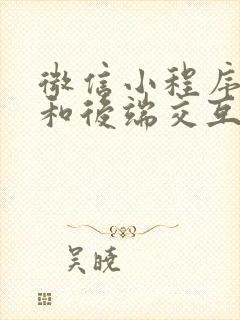 微信小程序
和後端交互
吴晓